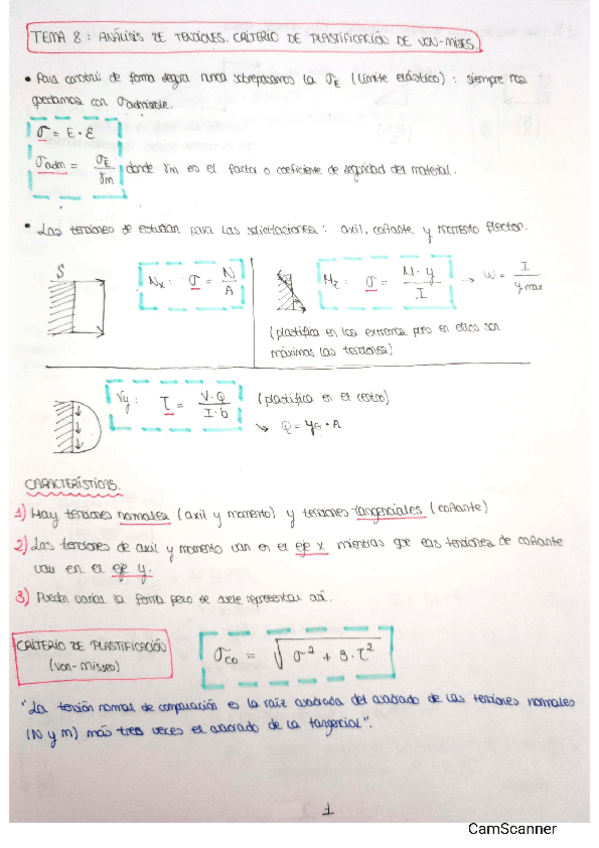 TEMA 8: ANÁLISIS DE TENSIONES. CRITERIO DE PLASTIFICACIÓN DE VON-MISES.
• Para construir de forma segura nunca sobrepasamos la σE (límite elástico): siempre nos
quedamos con σadmisible.
σ = E · ε
σadm = σE / γm donde γm es el factor o coeficiente de seguridad del material.
• Las tensiones se estudian para las solicitaciones: axil, cortante y momento flector.
S
Nx: σ = N / A
Mz: σ = M · y / I → W = I / ymax
(plastifica en los extremos pues en ellos son
máximas las tensiones)
Vy: τ = V · Q / I · b (plastifica en el centro)
↳ Q = yG · A
CARACTERÍSTICAS.
1) Hay tensiones normales (axil y momento) y tensiones tangenciales (cortante)
2) Las tensiones de axil y momento van en el eje x mientras que las tensiones de cortante
van en el eje y.
3) Pueden variar la forma pero se suele representar así.
CRITERIO DE PLASTIFICACIÓN
(von-misses)
σco = √σ² + 3·τ²
"La tensión normal de comparación es la raíz cuadrada del cuadrado de las tensiones normales
(N y M) más tres veces el cuadrado de la tangencial".
1
CamScanner